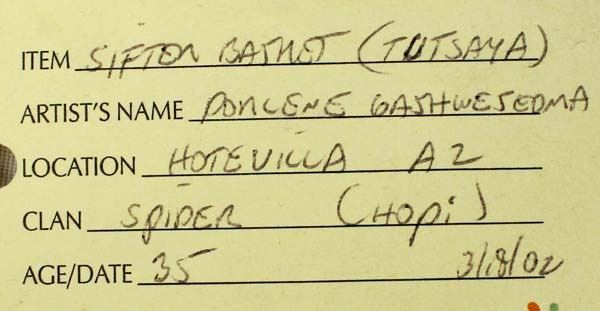 ITEM SIFTER BASKET (TUTSAYA)
ARTIST'S NAME DORLENE GASHWESEOMA
LOCATION HOTEVILLA AZ
CLAN SPIDER (HOPI)
AGE/DATE 35 3/18/02